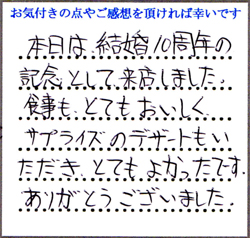 お気付きの点やご感想を頂ければ幸いです
本日は、結婚10周年の
記念として来店しました。
食事も、とてもおいしく
サプライズのデザートもい
ただき、とてもよかったです。
ありがとうございました。